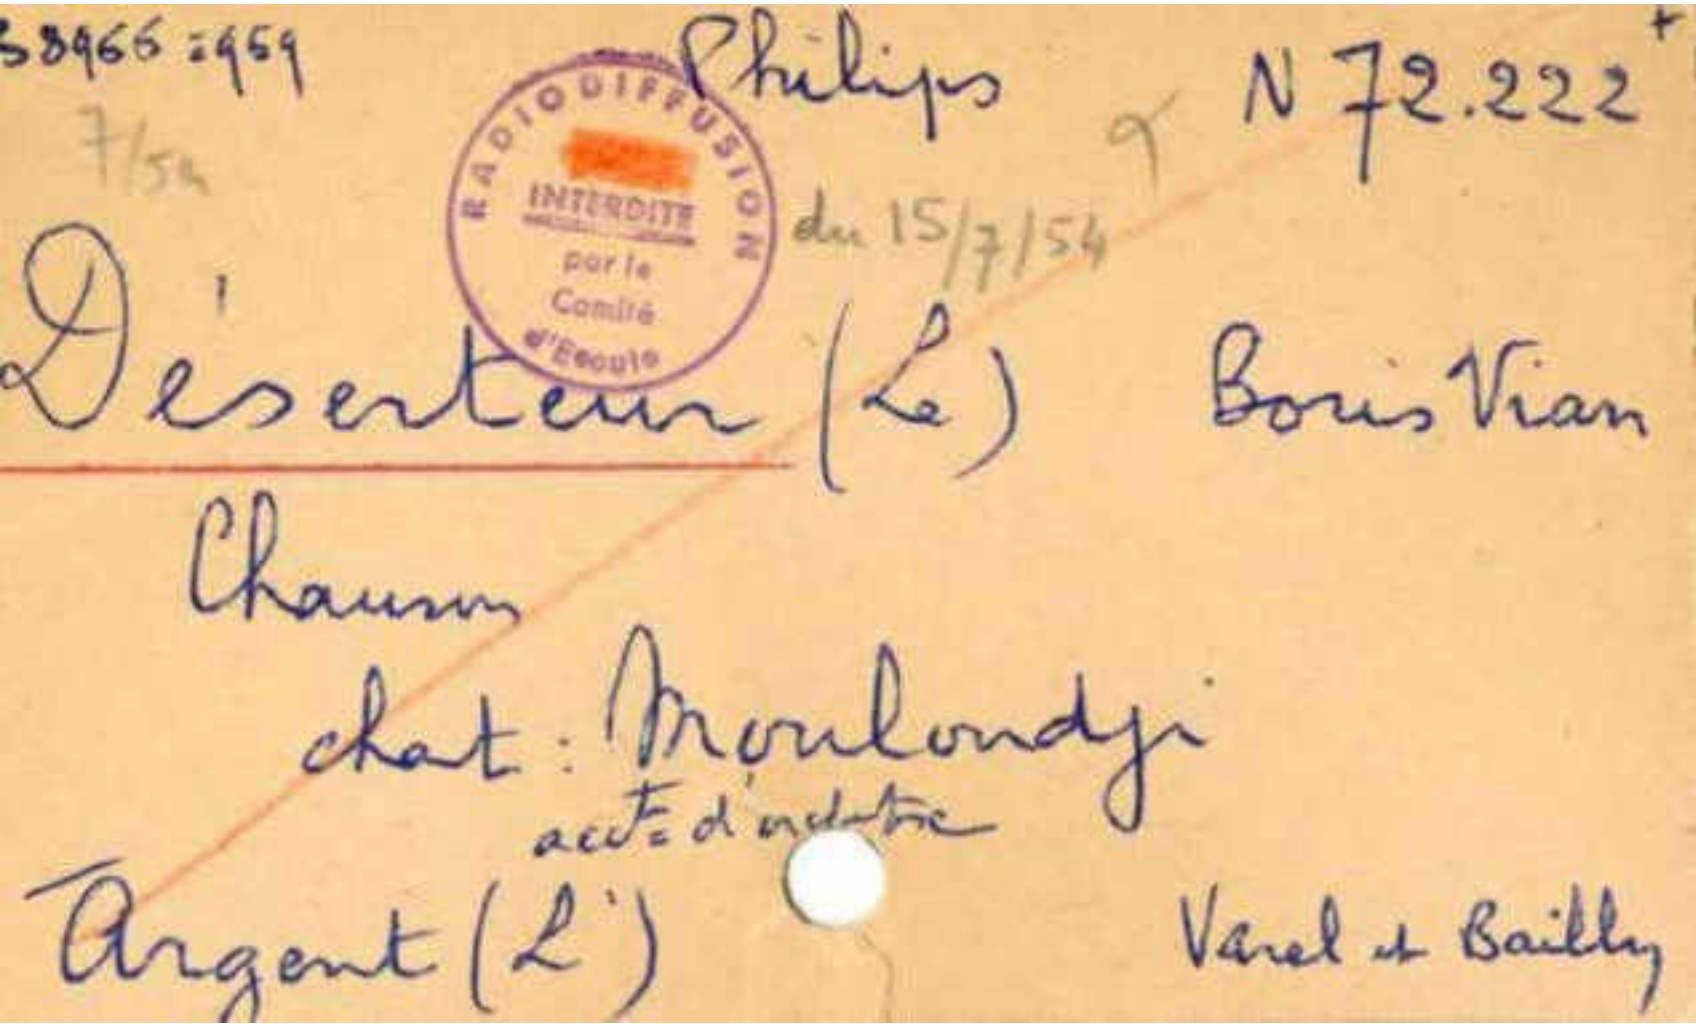 38966 = 959
Philips
N 72.222
+
7/54
RADIODIFFUSION
INTERDITE
par le
Comité
d'Ecoute
du 15/7/54
Déserteur (Le)
Boris Vian
Chanson
chat : Mouloudji
acct d'orchestre
Argent (L')
Varel et Bailly